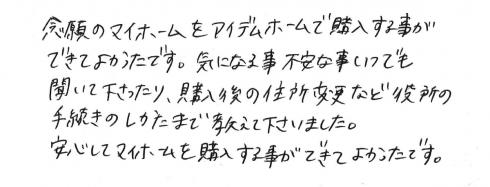 念願のマイホームをアイデムホームで購入する事が
できてよかったです。気になる事不安な事いつでも
聞いて下さったり、購入後の住所変更など役所の
手続きのしかたまで教えて下さいました。
安心してマイホームを購入する事ができてよかったです。